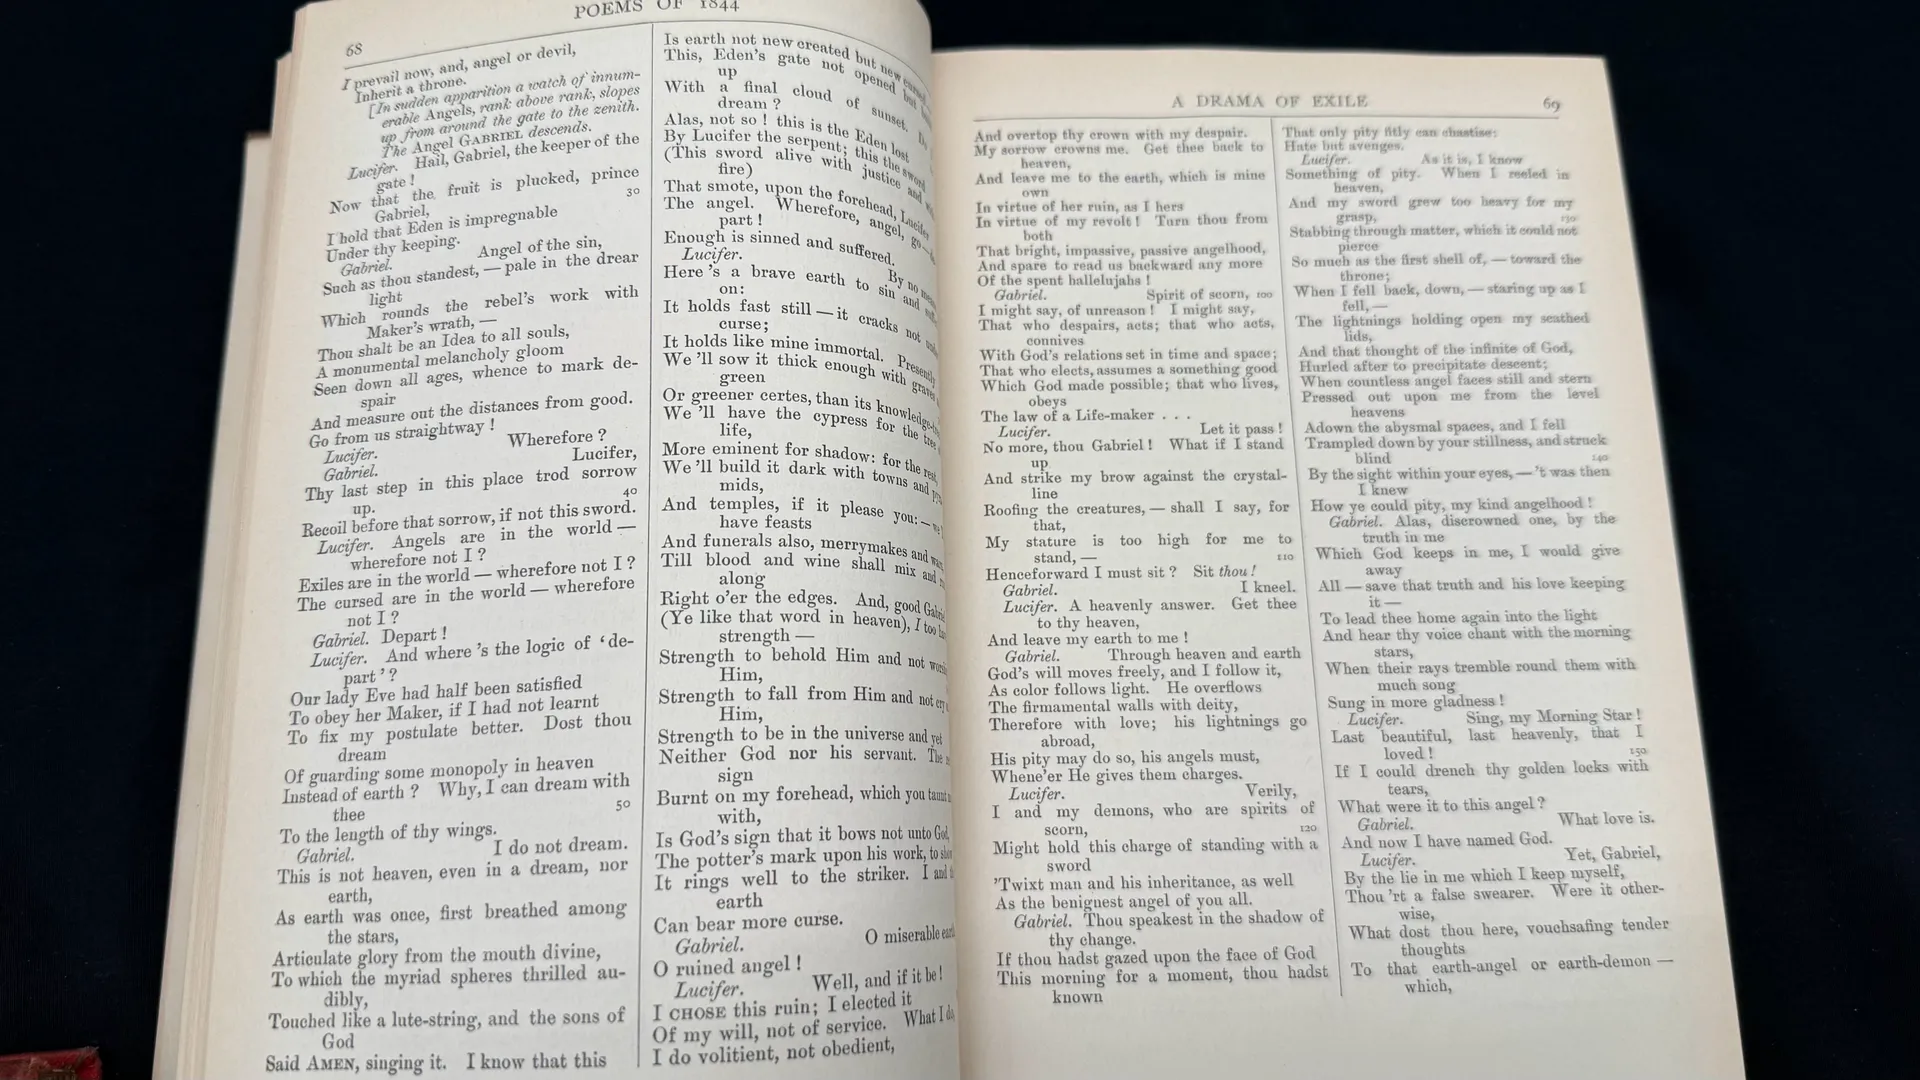 POEMS OF 1844
68
I prevail now, and, angel or devil,
Inherit a throne.
[In sudden apparition a watch of innum-
erable Angels, rank above rank, slopes
up from around the gate to the zenith.
The Angel GABRIEL descends.
Lucifer. Hail, Gabriel, the keeper of the
gate !
Now that the fruit is plucked, prince
Gabriel, 30
I hold that Eden is impregnable
Under thy keeping.
Gabriel. Angel of the sin,
Such as thou standest, — pale in the drear
light
Which rounds the rebel's work with
Maker's wrath, —
Thou shalt be an Idea to all souls,
A monumental melancholy gloom
Seen down all ages, whence to mark de-
spair
And measure out the distances from good.
Go from us straightway !
Lucifer. Wherefore ?
Gabriel. Lucifer,
Thy last step in this place trod sorrow
up. 40
Recoil before that sorrow, if not this sword.
Lucifer. Angels are in the world —
wherefore not I ?
Exiles are in the world — wherefore not I ?
The cursed are in the world — wherefore
not I ?
Gabriel. Depart !
Lucifer. And where 's the logic of 'de-
part' ?
Our lady Eve had half been satisfied
To obey her Maker, if I had not learnt
To fix my postulate better. Dost thou
dream
Of guarding some monopoly in heaven
Instead of earth ? Why, I can dream with
thee 50
To the length of thy wings.
Gabriel. I do not dream.
This is not heaven, even in a dream, nor
earth,
As earth was once, first breathed among
the stars,
Articulate glory from the mouth divine,
To which the myriad spheres thrilled au-
dibly,
Touched like a lute-string, and the sons of
God
Said AMEN, singing it. I know that this
Is earth not new created but new cursed
This, Eden's gate not opened but
up
With a final cloud of sunset. Do
dream ?
Alas, not so ! this is the Eden lost
By Lucifer the serpent; this the sword
(This sword alive with justice and
fire)
That smote, upon the forehead, Lucifer
The angel. Wherefore, angel, go
part !
Enough is sinned and suffered.
Lucifer. By no
Here 's a brave earth to sin and
on:
It holds fast still — it cracks not
curse;
It holds like mine immortal. Presently
We 'll sow it thick enough with graves
green
Or greener certes, than its
We 'll have the cypress for the tree
life,
More eminent for shadow: for the rest,
We 'll build it dark with towns and
mids,
And temples, if it please you: —
have feasts
And funerals also, merrymakes and
Till blood and wine shall mix and
along
Right o'er the edges. And, good
(Ye like that word in heaven), I too
strength —
Strength to behold Him and not
Him,
Strength to fall from Him and not cry
Him,
Strength to be in the universe and yet
Neither God nor his servant. The
sign
Burnt on my forehead, which you taunt
with,
Is God's sign that it bows not unto God,
The potter's mark upon his work, to show
It rings well to the striker. I and
earth
Can bear more curse.
Gabriel. O miserable earth
O ruined angel !
Lucifer. Well, and if it be !
I CHOSE this ruin; I elected it
Of my will, not of service. What I do,
I do volitient, not obedient,
A DRAMA OF EXILE
69
And overtop thy crown with my despair.
My sorrow crowns me. Get thee back to
heaven,
And leave me to the earth, which is mine
own
In virtue of her ruin, as I hers
In virtue of my revolt ! Turn thou from
both
That bright, impassive, passive angelhood,
And spare to read us backward any more
Of the spent hallelujahs !
Gabriel. Spirit of scorn, 100
I might say, of unreason ! I might say,
That who despairs, acts; that who acts,
connives
With God's relations set in time and space;
That who elects, assumes a something good
Which God made possible; that who lives,
obeys
The law of a Life-maker . . .
Lucifer. Let it pass !
No more, thou Gabriel ! What if I stand
up
And strike my brow against the crystal-
line
Roofing the creatures, — shall I say, for
that,
My stature is too high for me to
stand, — 110
Henceforward I must sit ? Sit thou !
Gabriel. I kneel.
Lucifer. A heavenly answer. Get thee
to thy heaven,
And leave my earth to me !
Gabriel. Through heaven and earth
God's will moves freely, and I follow it,
As color follows light. He overflows
The firmamental walls with deity,
Therefore with love; his lightnings go
abroad,
His pity may do so, his angels must,
Whene'er He gives them charges.
Lucifer. Verily,
I and my demons, who are spirits of
scorn, 120
Might hold this charge of standing with a
sword
'Twixt man and his inheritance, as well
As the benignest angel of you all.
Gabriel. Thou speakest in the shadow of
thy change.
If thou hadst gazed upon the face of God
This morning for a moment, thou hadst
known
That only pity fitly can chastise:
Hate but avenges.
Lucifer. As it is, I know
Something of pity. When I reeled in
heaven,
And my sword grew too heavy for my
grasp, 130
Stabbing through matter, which it could not
pierce
So much as the first shell of, — toward the
throne;
When I fell back, down, — staring up as I
fell, —
The lightnings holding open my scathed
lids,
And that thought of the infinite of God,
Hurled after to precipitate descent;
When countless angel faces still and stern
Pressed out upon me from the level
heavens
Adown the abysmal spaces, and I fell
Trampled down by your stillness, and struck
blind 140
By the sight within your eyes, — 't was then
I knew
How ye could pity, my kind angelhood !
Gabriel. Alas, discrowned one, by the
truth in me
Which God keeps in me, I would give
away
All — save that truth and his love keeping
it —
To lead thee home again into the light
And hear thy voice chant with the morning
stars,
When their rays tremble round them with
much song
Sung in more gladness !
Lucifer. Sing, my Morning Star !
Last beautiful, last heavenly, that I
loved ! 150
If I could drench thy golden locks with
tears,
What were it to this angel ?
Gabriel. What love is.
And now I have named God.
Lucifer. Yet, Gabriel,
By the lie in me which I keep myself,
Thou 'rt a false swearer. Were it other-
wise,
What dost thou here, vouchsafing tender
thoughts
To that earth-angel or earth-demon —
which,